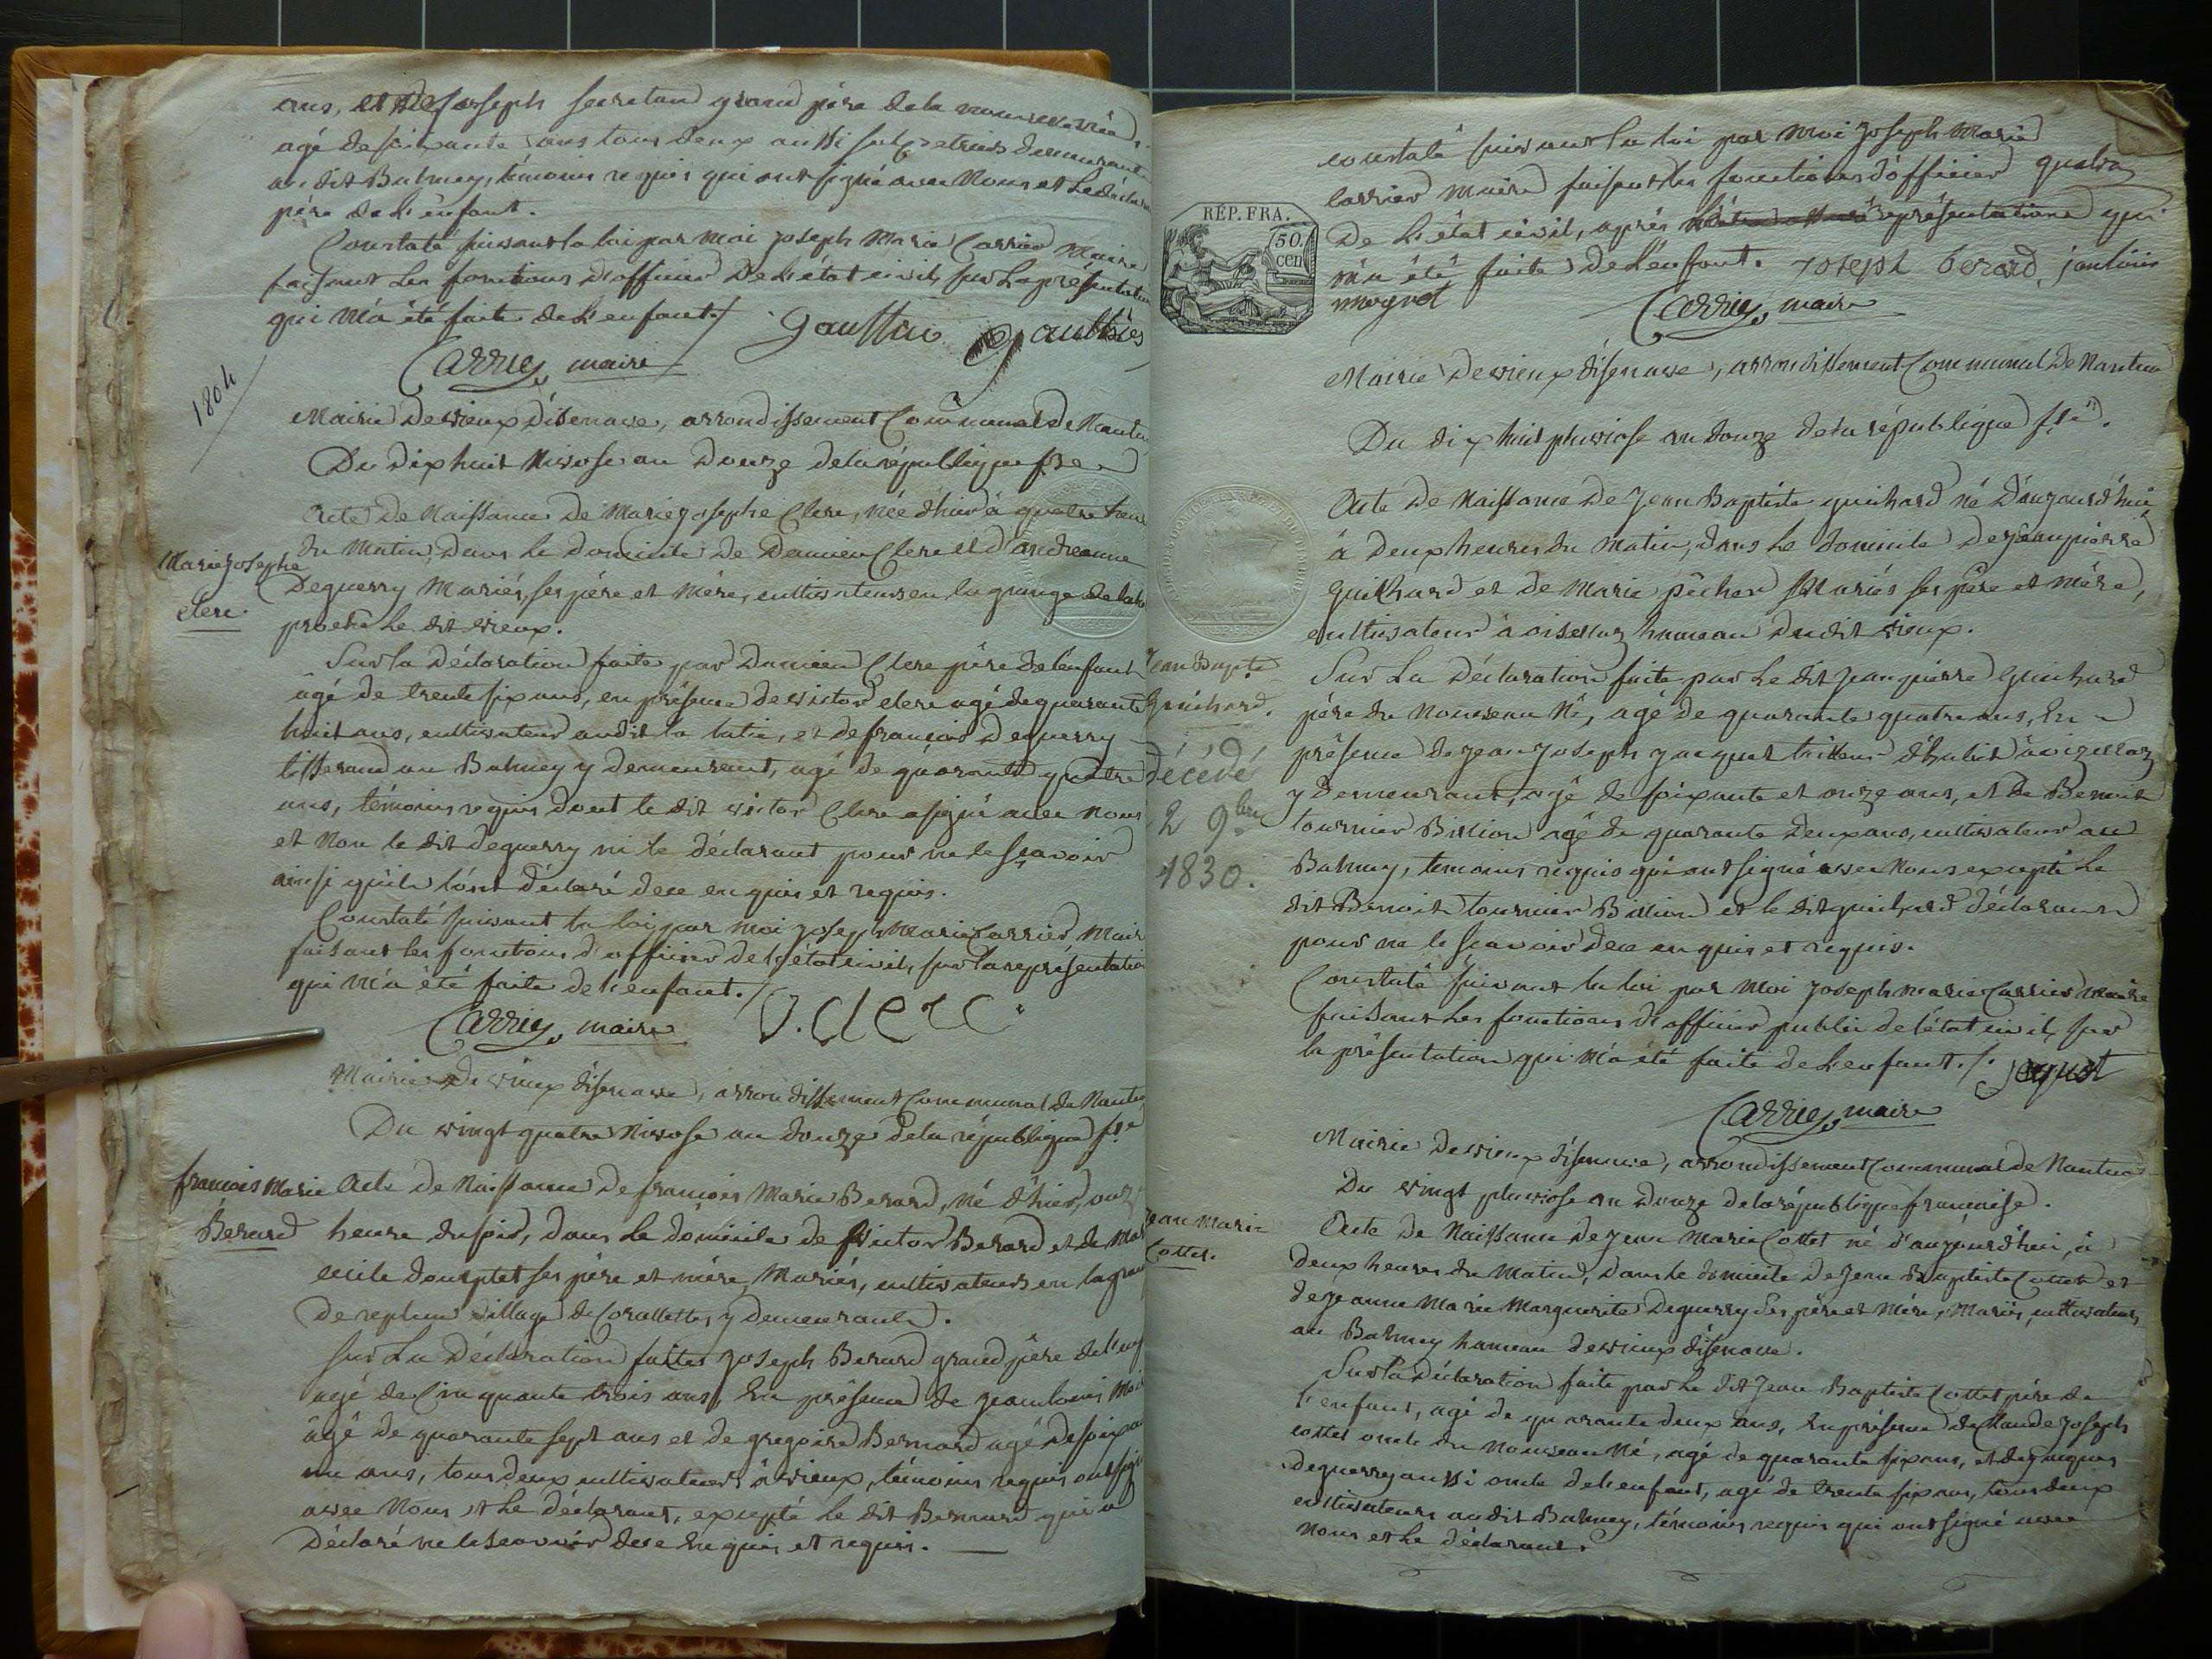 ans, et de joseph secretand grand père de la nouvelle née,
agé de soixante ans tous deux aussi salpetriers demeurants
au dit Bulmey, témoins requis qui ont signé avec Nous et le déclarant
père de l'enfant.
Constaté suivant la loi par moi joseph Marie Carrier Maire
faisant les fonctions d'officier de l'état civil, sur la présentation
qui m'a été faite de l'enfant./
Carrier, maire
1804
Mairie de vieux d'isenave, arrondissement Communal de Nantua
Du dix huit Nivose an Douze de la république fse
Acte de Naissance de Marie josephe Clerc, née d'hier à quatre heures
du Matin, dans le domicile de Damien Clerc et d'andreanne
Marie josephe
clerc
Deguerry Mariés, ses père et mère, cultivateurs en la grange de
proche le dit vieux.
Sur la déclaration faite par Damien Clerc père de l'enfant
âgé de trente six ans, en présence de victor clerc agé de quarante
huit ans, cultivateur audit la, et de françois Deguerry
tisserand au Balmey y demeurant, agé de quarante quatre
ans, témoins requis dont le dit victor Clerc a signé avec nous
et non le dit deguerry ni le déclarant pour ne le sçavoir
ainsi qu'ils l'ont déclaré de ce enquis et requis.
Constaté suivant la loi, par moi joseph Marie Carrier Maire
faisant les fonctions d'officier de l'état civil, sur la représentation
qui m'a été faite de l'enfant./
Carrier, maire V. clerc
Mairie de vieux d'isenave, arrondissement Communal de Nantua
Du vingt quatre Nivose an douze de la république fse
françois Marie
Berard
Acte de Naissance de françois Marie Berard, né d'hier, onze
heure du soir, dans le domicile de victor Berard et de
cecile dousplet ses père et mère, Mariés, cultivateurs en la
de village de y demeurants.
Sur La Déclaration faittes joseph Berard grand père de
agé de Cinquante trois ans, En présence de jean louis
âgé de quarante sept ans et de gregoire Bernard agé de
un ans, tous deux cultivateurs à vieux, témoins requis
avec Nous et le déclarant, excepté le dit Bernard qui a
Déclaré ne le scavoir de ce Enquis et requis.
constaté suivant la loi par moi joseph marie
Carrier maire faisant les fonctions d'officier
De l'état civil, après représentations qui
m'a été faite de l'enfant. joseph berard
Carrier, maire
RÉP. FRA.
50.
cen
Mairie de vieux d'isenave, arrondissement Communal de Nantua
Du dix huit pluviose an douze de la république fse.
Acte de Naissance de Jean Baptiste guichard né D'aujourd'hui
à deux heures du matin, dans le domicile de jean pierre
guichard et de Marie pêcher Mariés ses père et mère,
cultivateur à oisellaz hameau dudit vieux.
Jean Bapte
Guichard.
décédé
2 9bre
1830.
Sur La Déclaration faite par le dit jean pierre guichard
père du nouveau né, agé de quarante quatre ans, En
présence de jean joseph jacquet tailleur d'habit à oizellaz
y demeurant, agé de soixante et onze ans, et de Benoit
tournier Billion agé de quarante deux ans, cultivateur au
Balmey, temoins requis qui ont signé avec Nous excepté le
dit Benoit tournier Billion et le dit guichard déclarant
pour ne le sçavoir de ce enquis et requis.
Constaté suivant la loi par moi joseph marie Carrier maire
faisant les fonctions d'officier public de l'état civil, sur
la présentation qui m'a été faite de l'enfant./. jaquet
Carrier, maire
Mairie de vieux d'isenave, arrondissement Communal de Nantua
Du vingt pluviose an douze de la république francaise.
jean marie
Cottet.
Acte de Naissance de jean Marie Cottet né d'aujourd'hui, à
deux heures du matin, dans le domicile de jean Baptiste Cottet et
de jeanne Marie Marguerite Deguerry ses père et mère, Mariés, cultivateurs,
au Balmey hameau de vieux d'isenave.
Sur la déclaration faite par le dit jean Baptiste Cottet père de
l'enfant, agé de quarante deux ans, en présence de Claude joseph
cottet oncle du nouveau né, agé de quarante six ans, et de jacques
deguerry aussi oncle de l'enfant, agé de trente six ans, tous deux
cultivateurs audit Balmey, témoins requis qui ont signé avec
nous et le déclarant.